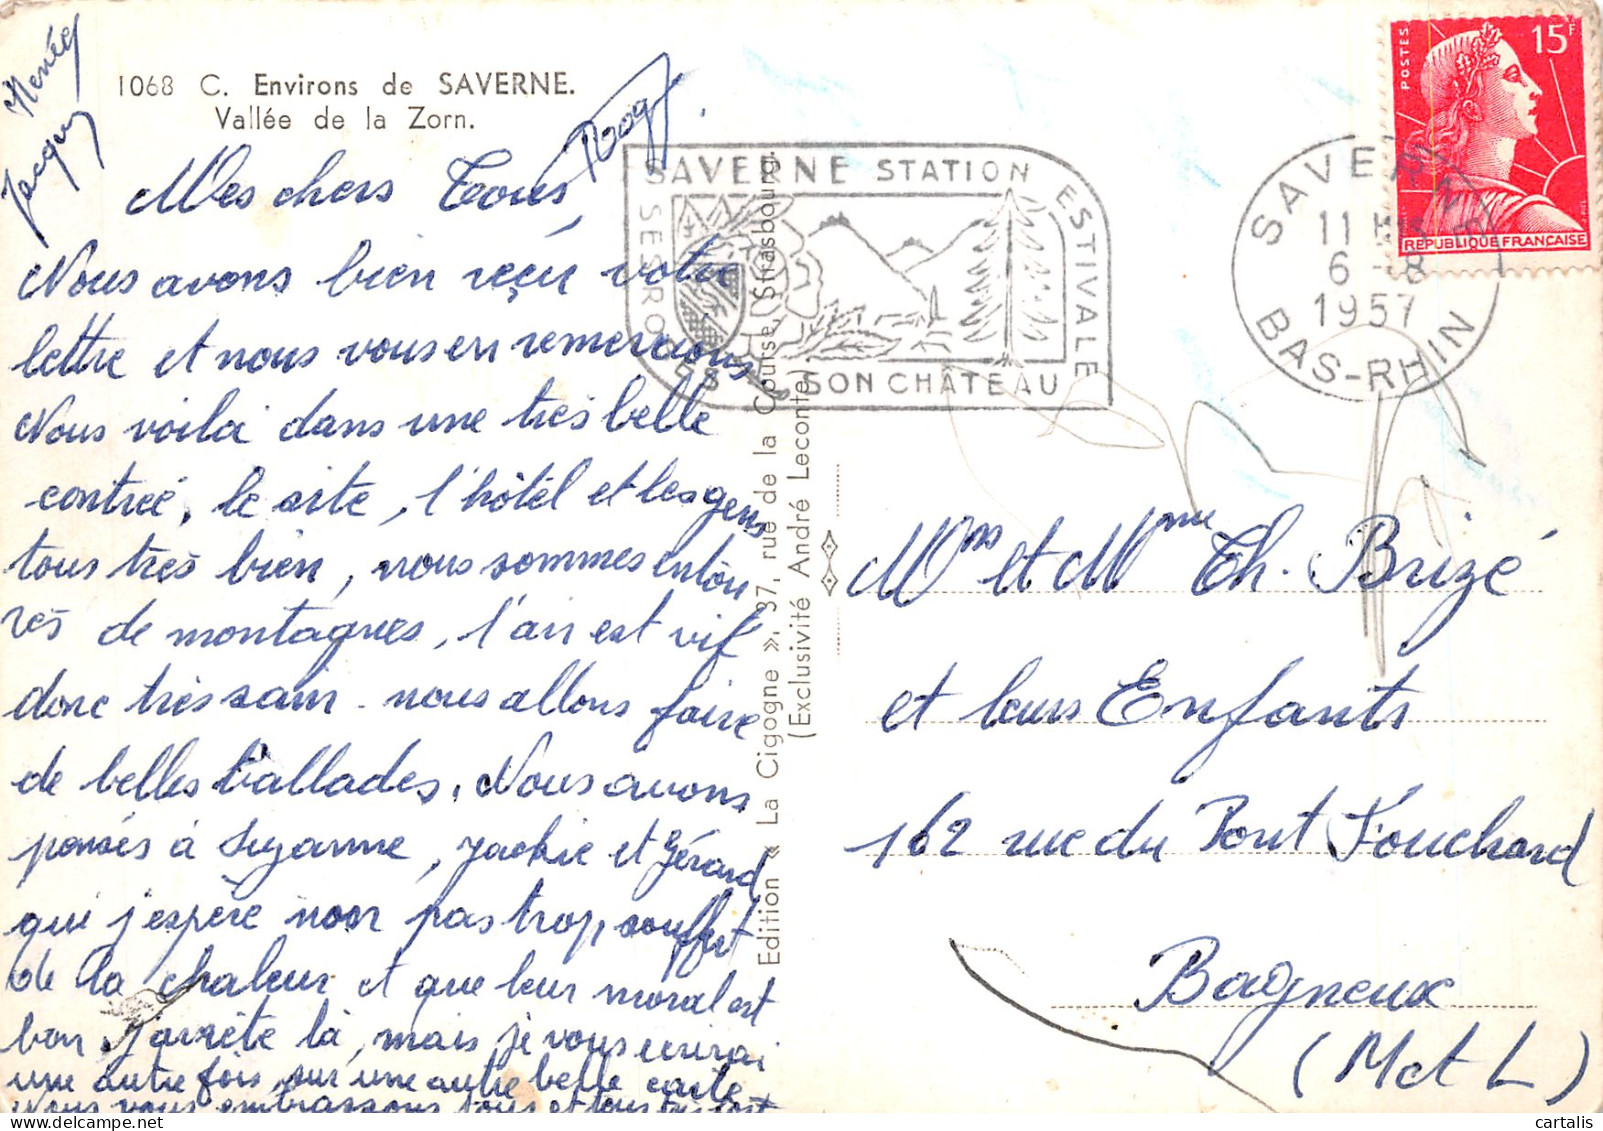 1068 C. Environs de SAVERNE.
Vallée de la Zorn.
Jacques
Mes chers Tous,
Nous avons bien reçu votre
lettre et nous vous en remercions
Nous voilà dans une très belle
contrée, le site, l'hôtel et les gens
tous très bien, nous sommes entou
rés de montagnes, l'air est vif
donc très sain - nous allons faire
de belles ballades. Nous avons
pensés à Suzanne, Jackie et Gérard
qui j'espère n'ont pas trop souffert
de la chaleur et que leur moral est
bon j'arrête là, mais je vous écrirai
une autre fois, sur une autre belle carte
Nous vous embrassons tous et tous
Edition « La Cigogne », 37, rue de la Course, Strasbourg.
(Exclusivité André Leconte)
SAVERNE STATION ESTIVALE
SES ROSES
SON CHÂTEAU
SAVERNE
11 H
6 - 8
1957
BAS-RHIN
POSTES
15F
REPUBLIQUE FRANÇAISE
Mrs et Mme Th. Brizé
et leurs Enfants
162 rue du Pont Fouchard
Bagneux
(M et L)
delcampe.net
cartalis